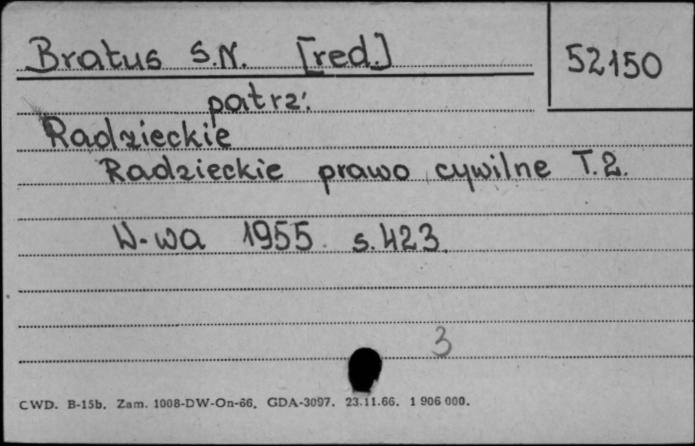 Bratus S.N. [red.]
52150
patrz:
Radzieckie
Radzieckie prawo cywilne T.2.
W-wa 1955 s.423
3
CWD. B-15b. Zam. 1008-DW-On-66. GDA-3097. 23.11.66. 1 906 000.